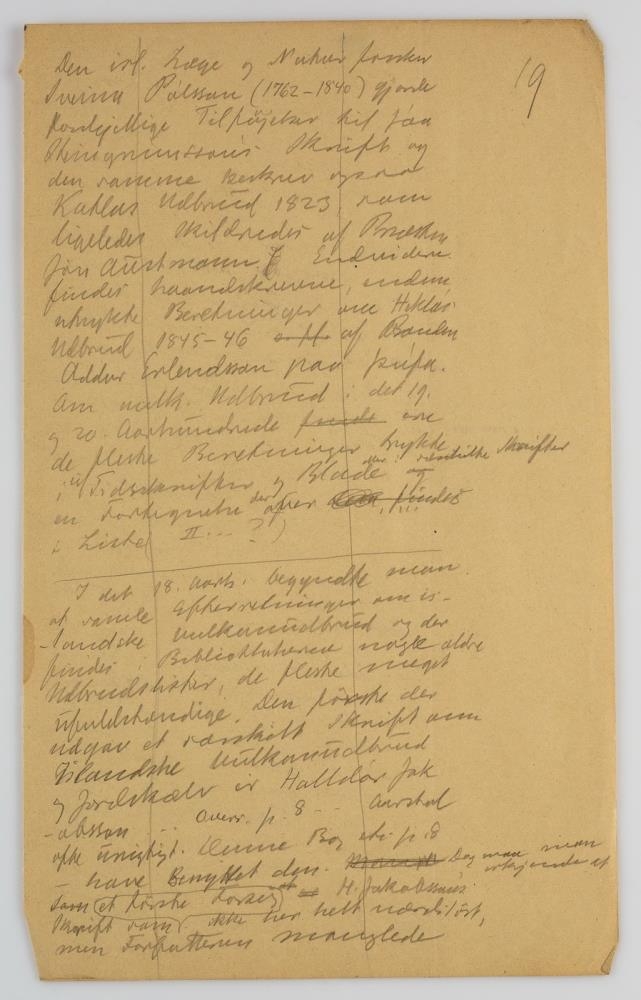 19
Den isl. Læge og Naturforsker
Sveinn Pálsson (1762–1840) gjorde
forskjellige Tilføjelser til Jón
Steingrimssons Skrift og
den samme beskrev ogsaa
Katlas Udbrud 1823, som
ligeledes skildredes af Præsten
Jón Austmann. Endvidere
findes haandskrevne,
utrykte Beretninger om Heklas
Udbrud 1845–46 af Bonden
Oddur Erlendsson paa þúfa.
Om vulk. Udbrud i det 19.
og 20. Aarhundrede findes ere
de fleste Beretninger trykte
i Tidsskrifter og Blade og særskilte Skrifter
en Fortegnelse over findes
i Liste II ... ?)
I det 18. Aarh. begyndte man
at samle Efterretninger om is-
landske Vulkanudbrud og der
findes i Bibliothekerne nogle ældre
Udbrudslister, de fleste meget
ufuldstændige. Den første der
udgav et særskilt Skrift om
Islandske Vulkanudbrud
og Jordskælv er Halldór Jak
-obsson ... p. 8 -- Aarstal
ofte urigtigt. Denne Bog etc. p. 8
– have Benyttet den. Dog maa man erkjende at
som et første Forsøg H. Jakobssons
Skrift som ikke her helt værdiløst,
men Forfatteren manglede